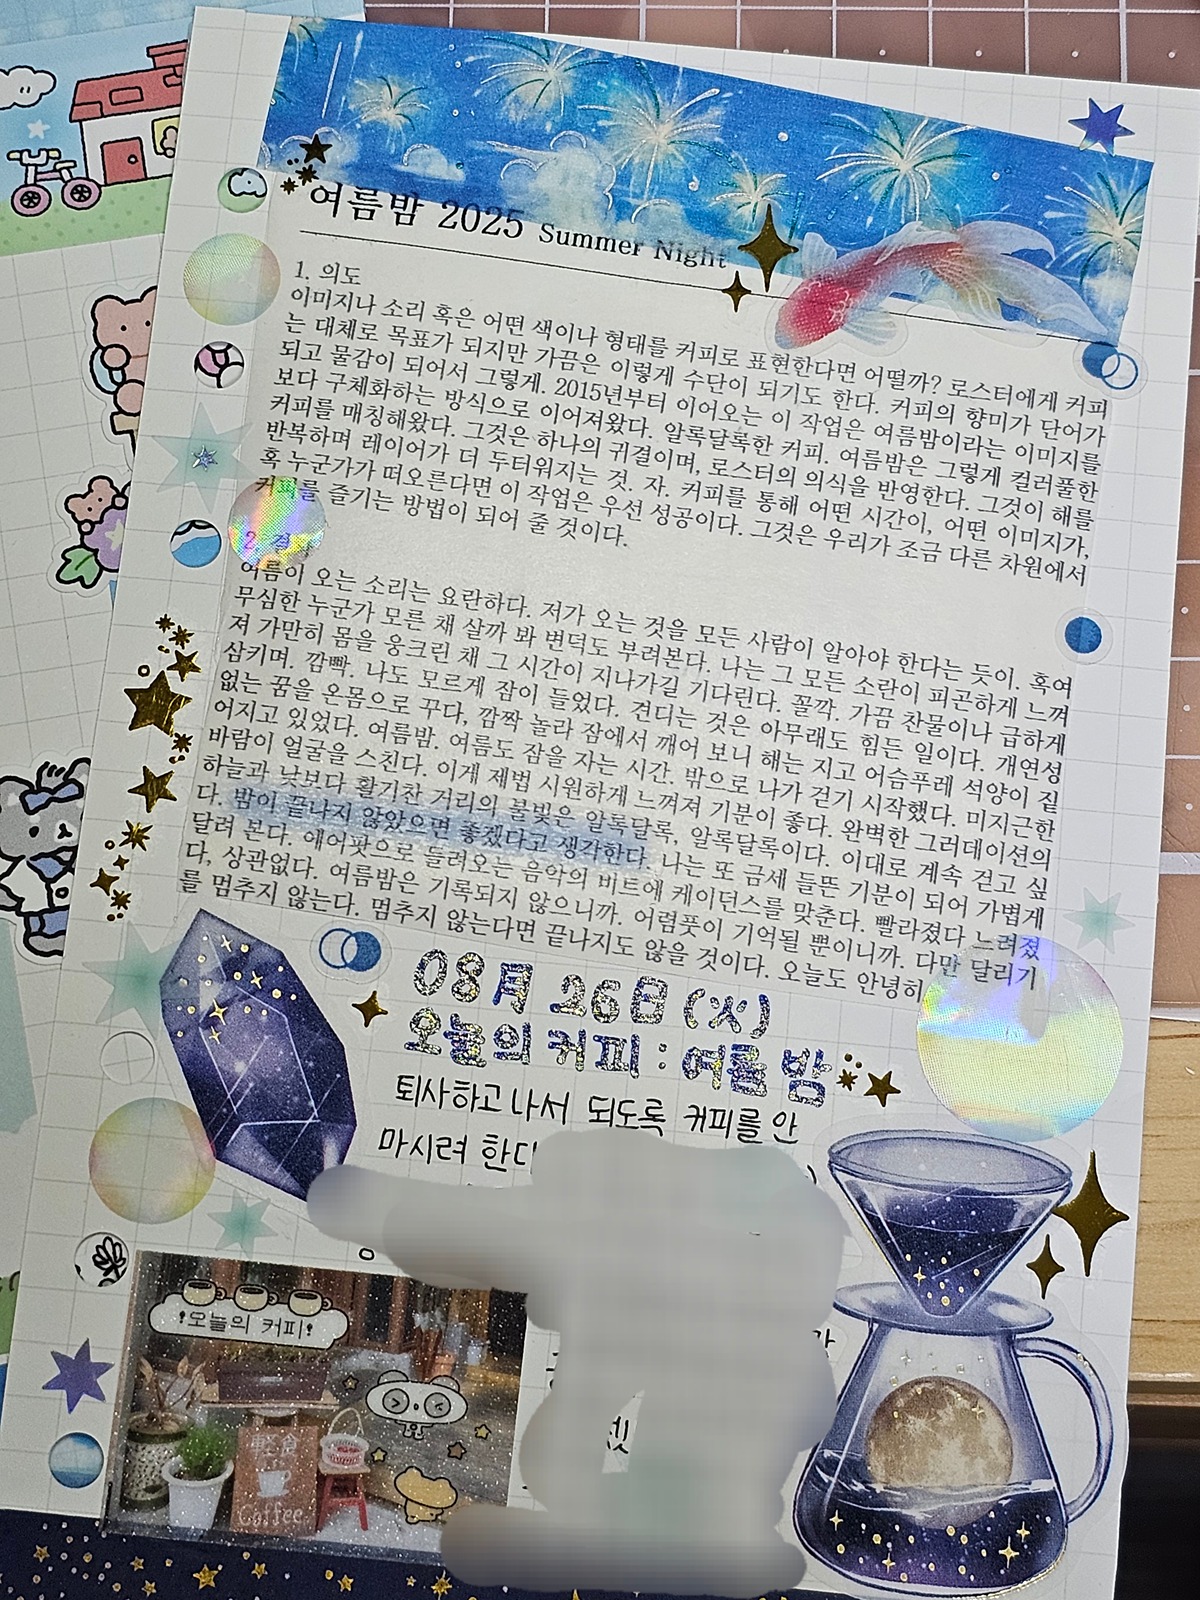 여름밤 2025 Summer Night
1. 의도
이미지나 소리 혹은 어떤 색이나 형태를 커피로 표현한다면 어떨까? 로스터에게 커피
는 대체로 목표가 되지만 가끔은 이렇게 수단이 되기도 한다. 커피의 향미가 단어가
되고 물감이 되어서 그렇게. 2015년부터 이어오는 이 작업은 여름밤이라는 이미지를
보다 구체화하는 방식으로 이어져왔다. 알록달록한 커피. 여름밤은 그렇게 컬러풀한
커피를 매칭해왔다. 그것은 하나의 귀결이며, 로스터의 의식을 반영한다. 그것이 해를
반복하며 레이어가 더 두터워지는 것. 자. 커피를 통해 어떤 시간이, 어떤 이미지가,
혹 누군가가 떠오른다면 이 작업은 우선 성공이다. 그것은 우리가 조금 다른 차원에서
커피를 즐기는 방법이 되어 줄 것이다.
2
여름이 오는 소리는 요란하다. 저가 오는 것을 모든 사람이 알아야 한다는 듯이. 혹여
무심한 누군가 모른 채 살까 봐 변덕도 부려본다. 나는 그 모든 소란이 피곤하게 느껴
져 가만히 몸을 웅크린 채 그 시간이 지나가길 기다린다. 꼴깍. 가끔 찬물이나 급하게
삼키며. 깜빡. 나도 모르게 잠이 들었다. 견디는 것은 아무래도 힘든 일이다. 개연성
없는 꿈을 온몸으로 꾸다, 깜짝 놀라 잠에서 깨어 보니 해는 지고 어슴푸레 석양이 짙
어지고 있었다. 여름밤. 여름도 잠을 자는 시간. 밖으로 나가 걷기 시작했다. 미지근한
바람이 얼굴을 스친다. 이게 제법 시원하게 느껴져 기분이 좋다. 완벽한 그러데이션의
하늘과 낮보다 활기찬 거리의 불빛은 알록달록, 알록달록이다. 이대로 계속 걷고 싶
다. 밤이 끝나지 않았으면 좋겠다고 생각한다. 나는 또 금세 들뜬 기분이 되어 가볍게
달려 본다. 에어팟으로 들려오는 음악의 비트에 케이던스를 맞춘다. 빨라졌다 느려졌
다, 상관없다. 여름밤은 기록되지 않으니까. 어렴풋이 기억될 뿐이니까. 다만 달리기
를 멈추지 않는다. 멈추지 않는다면 끝나지도 않을 것이다. 오늘도 안녕히
08月 26日 (火)
오늘의 커피 : 여름밤
퇴사하고 나서 되도록 커피를 안
마시려 한다
!오늘의 커피!
軽食
Coffee